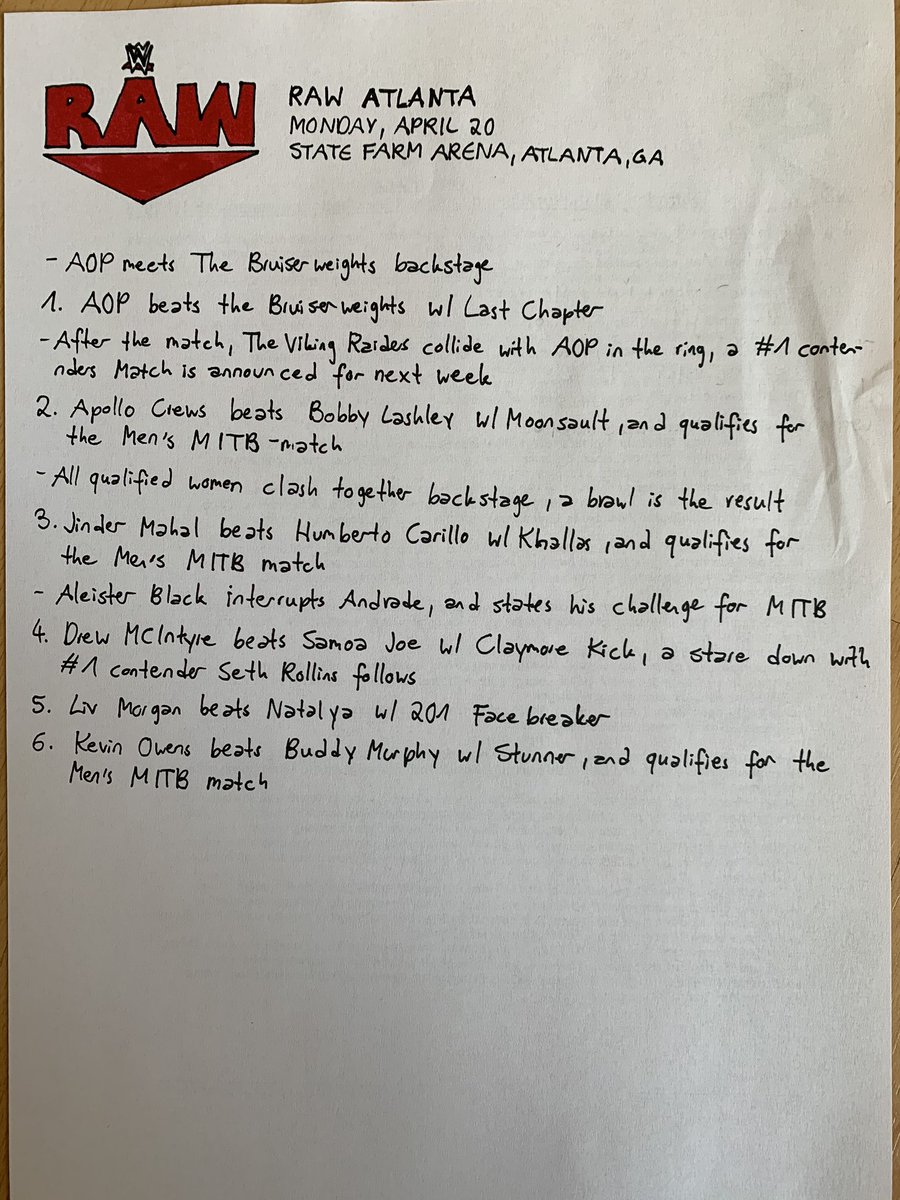 W
RAW
RAW ATLANTA
MONDAY, APRIL 20
STATE FARM ARENA, ATLANTA, GA
- AOP meets The Bruiserweights backstage
1. AOP beats the Bruiserweights w/ Last Chapter
- After the match, The Viking Raiders collide with AOP in the ring, a #1 conte-
nders Match is announced for next week
2. Apollo Crews beats Bobby Lashley w/ Moonsault, and qualifies for
the Men's MITB-match
- All qualified women clash together backstage, a brawl is the result
3. Jinder Mahal beats Humberto Carillo w/ Khallas, and qualifies for
the Men's MITB match
- Aleister Black interrupts Andrade, and states his challenge for MITB
4. Drew McIntyre beats Samoa Joe w/ Claymore Kick, a stare down with
#1 contender Seth Rollins follows
5. Liv Morgan beats Natalya w/ 201 Facebreaker
6. Kevin Owens beats Buddy Murphy w/ Stunner, and qualifies for the
Men's MITB match